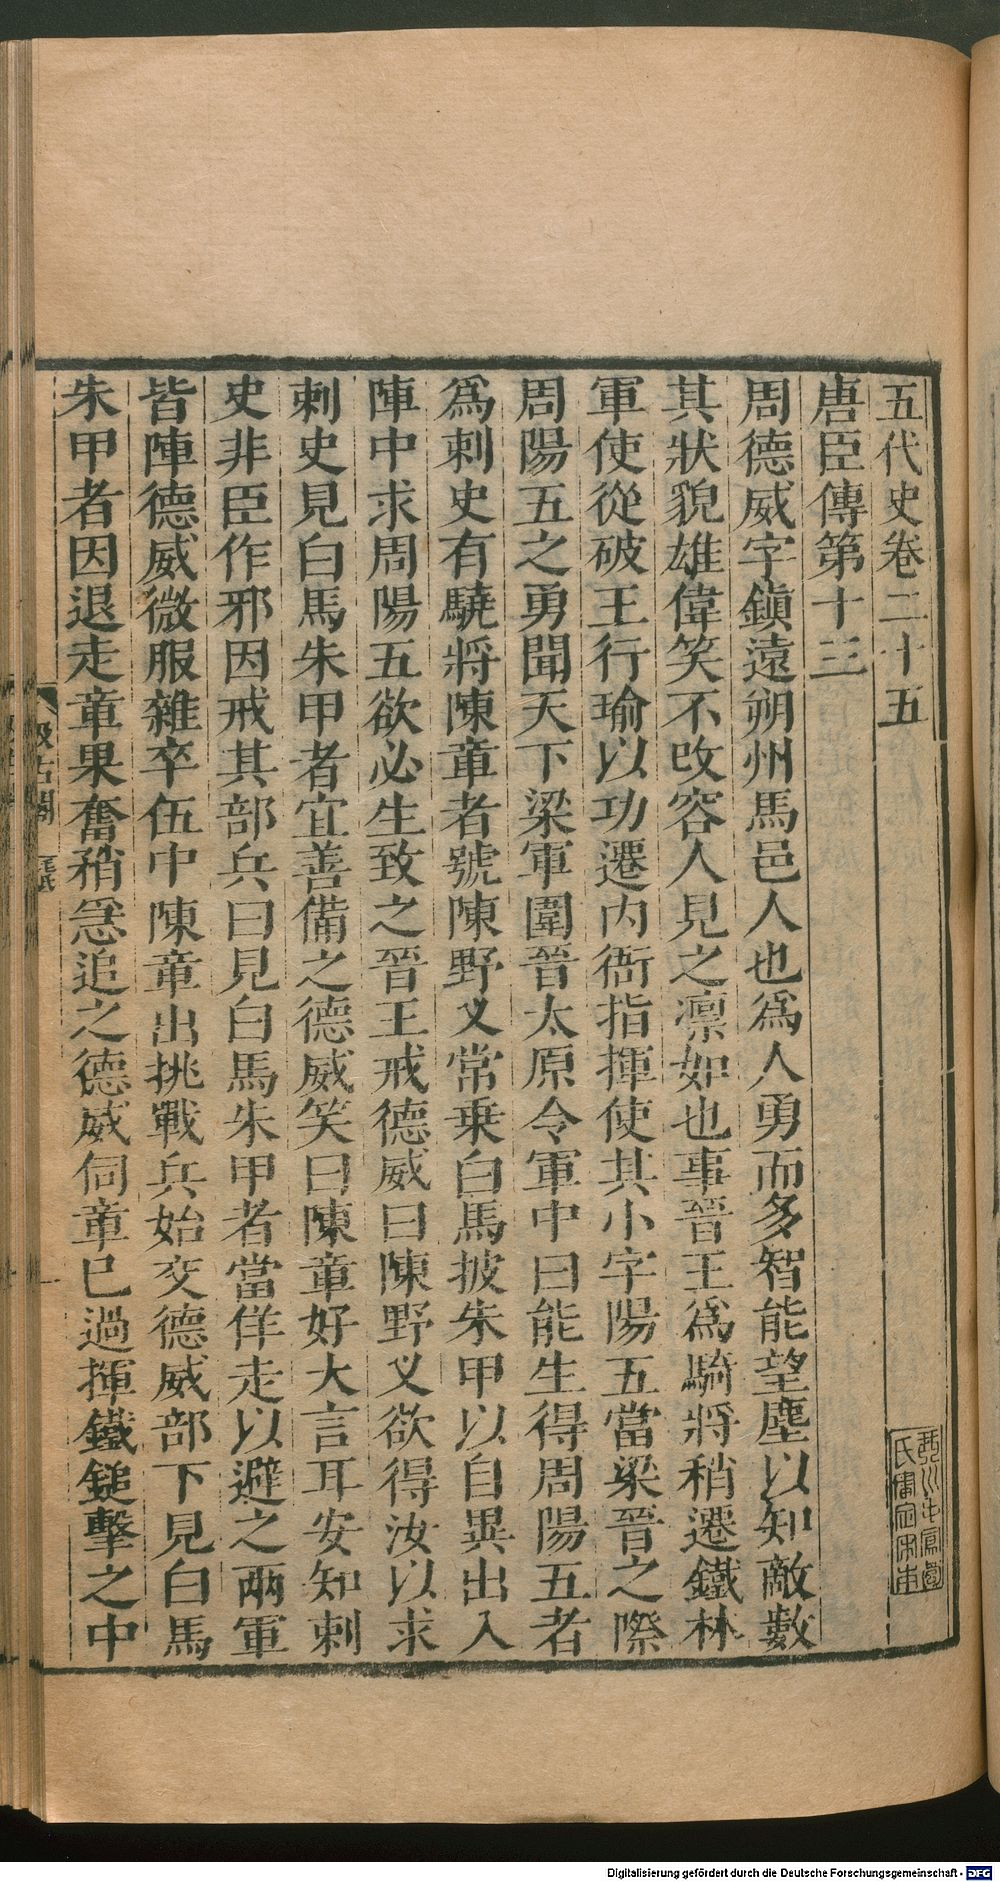 五代史卷二十五
唐臣傳第十三
周德威字鎭遠朔州馬邑人也爲人勇而多智能望塵以知敵數
其狀貌雄偉笑不改容人見之凛如也事晉王爲騎將稍遷鐵林
軍使從破王行瑜以功遷內衙指揮使其小字陽五當梁晉之際
周陽五之勇聞天下梁軍圍晉太原令軍中曰能生得周陽五者
爲刺史有驍將陳章者號陳野义常乗白馬披朱甲以自異出入
陣中求周陽五欲必生致之晉王戒德威曰陳野义欲得汝以求
刺史見白馬朱甲者宜善備之德威笑曰陳章好大言耳安知刺
史非臣作邪因戒其部兵曰見白馬朱甲者當佯走以避之兩軍
皆陣德威微服雜卒伍中陳章出挑戰兵始交德威部下見白馬
朱甲者因退走章果奮矟急追之德威伺章已過揮鐵鎚擊之中
汲古閣
毛氏
琴川毛鳳苞
氏審定宋本
Digitalisierung gefördert durch die Deutsche Forschungsgemeinschaft - DFG